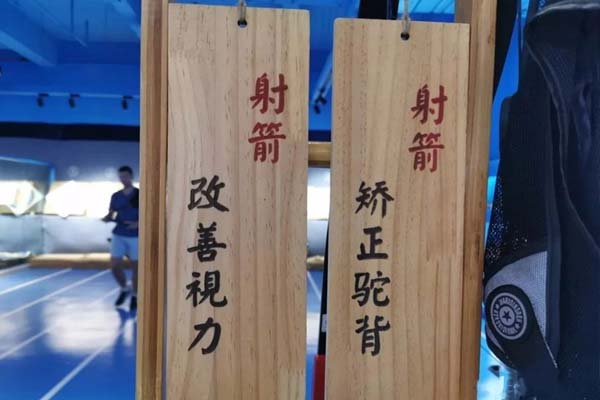 射箭
改善視力
射箭
矫正驼背